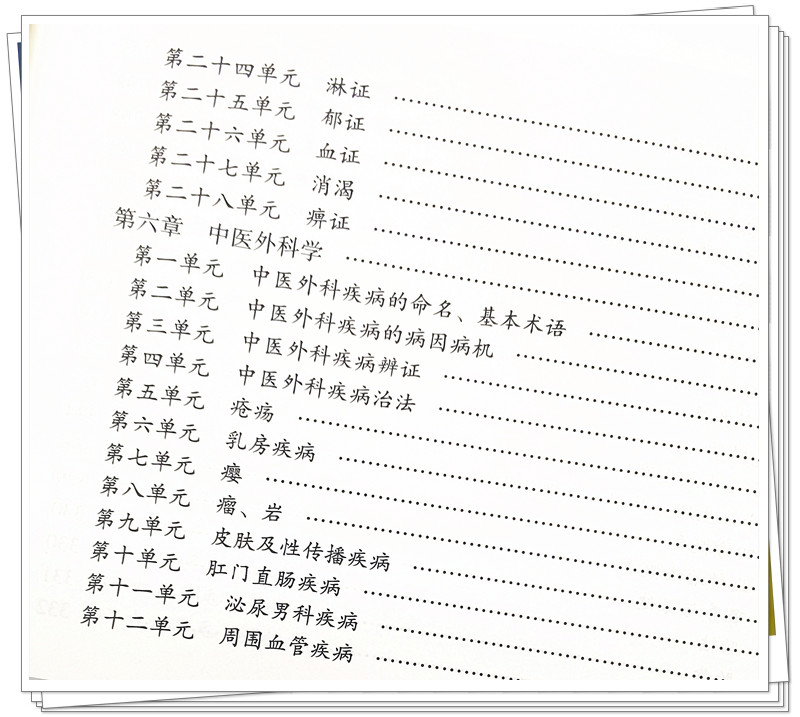 第二十四单元 淋证
第二十五单元 郁证
第二十六单元 血证
第二十七单元 消渴
第二十八单元 痹证
第六章 中医外科学
第一单元 中医外科疾病的命名、基本术语
第二单元 中医外科疾病的病因病机
第三单元 中医外科疾病辨证
第四单元 中医外科疾病治法
第五单元 疮疡
第六单元 乳房疾病
第七单元 瘿
第八单元 瘤、岩
第九单元 皮肤及性传播疾病
第十单元 肛门直肠疾病
第十一单元 泌尿男科疾病
第十二单元 周围血管疾病